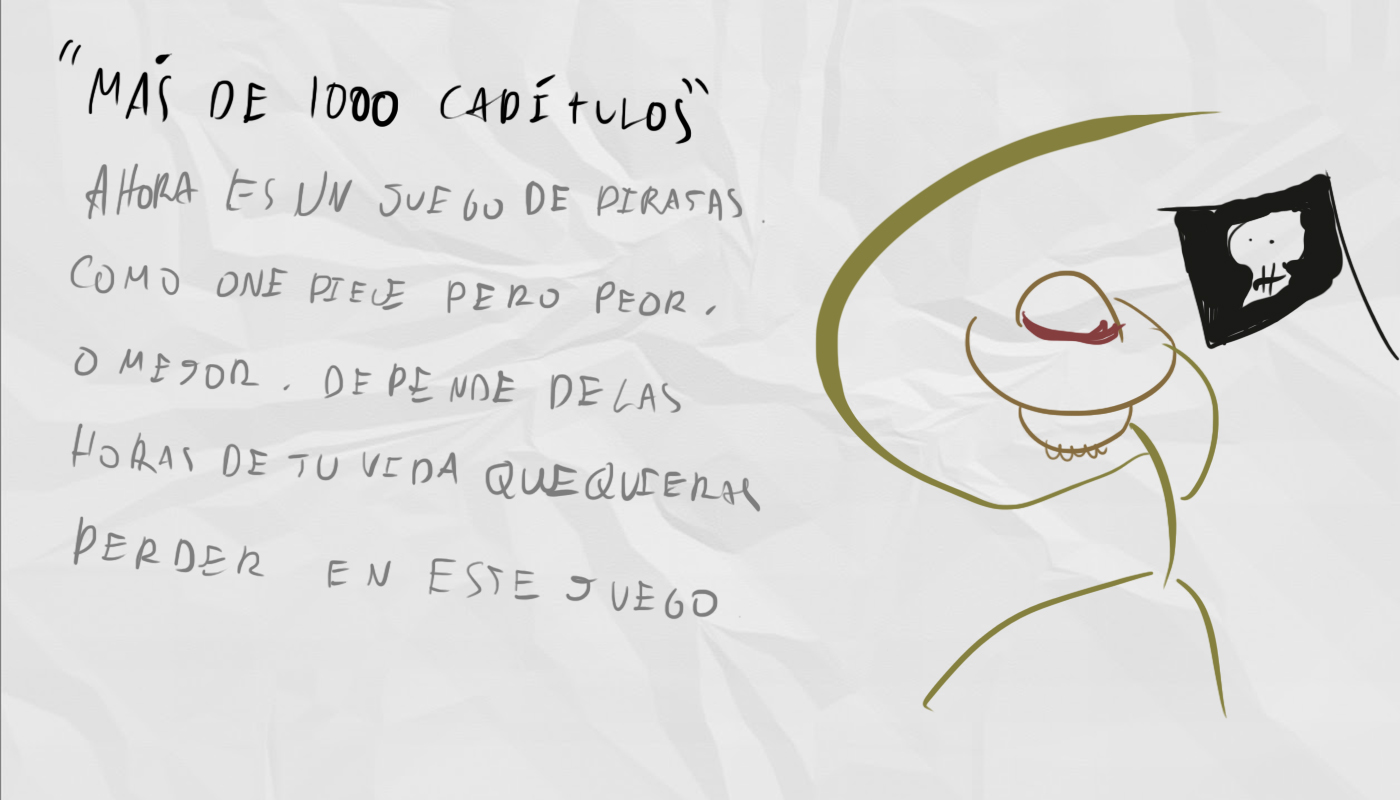 "MÁS DE 1000 CAPÍTULOS"
AHORA ES UN JUEGO DE PIRATAS.
COMO ONE PIECE PERO PEOR.
O MEJOR. DEPENDE DE LAS
HORAS DE TU VIDA QUE QUIERAS
PERDER EN ESTE JUEGO